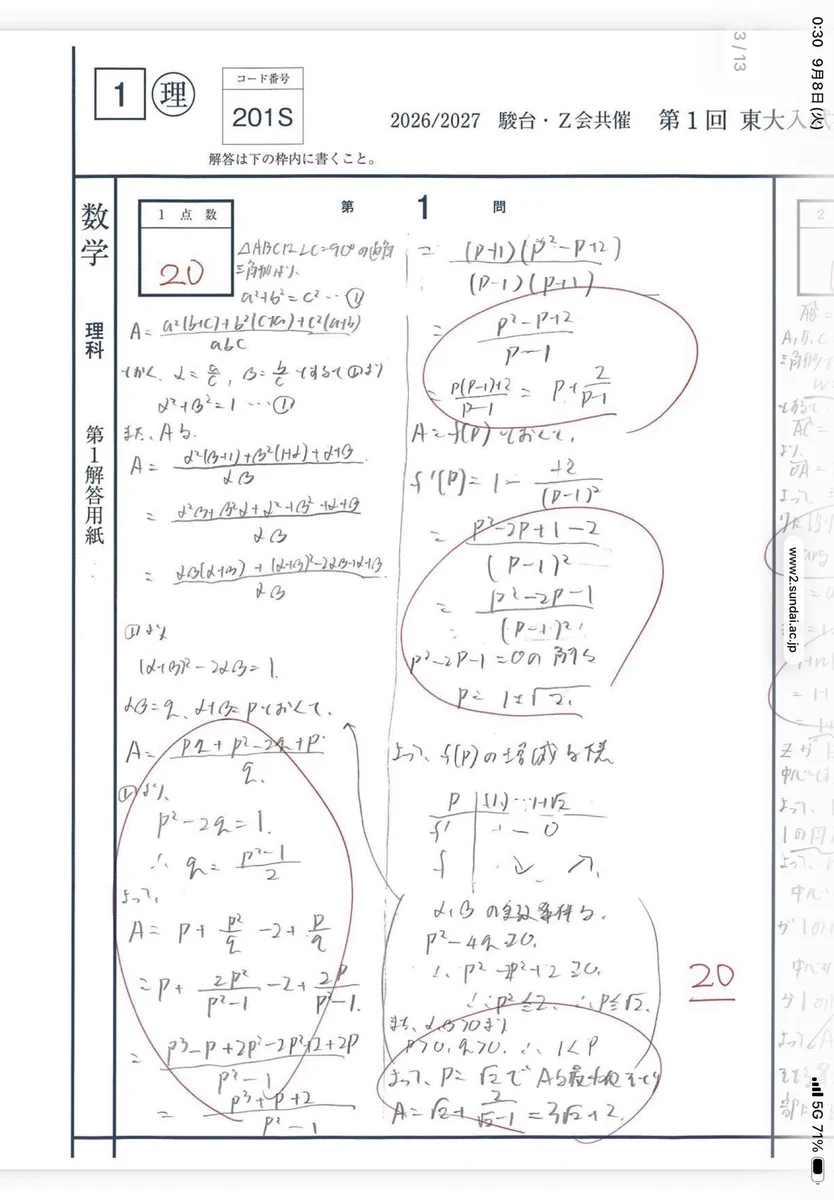 0:30 9月8日(火)
3/13
1 理
コード番号
201S
2026/2027 駿台・Z会共催 第1回 東大入試
解答は下の枠内に書くこと。
数学
理科
第1解答用紙
1 点 数
20
第 1 問
△ABCは∠C=90°の直角
三角形より、
a²+b²=c² … ①
A= a²(b+c)+b²(c+a)+c²(a+b) / abc
α= a/c, β= b/c とすると①より
α²+β²=1 … ①
また、Aは、
A= α²(β+1)+β²(1+α)+α+β / αβ
= α²β+β²α+α²+β²+α+β / αβ
= αβ(α+β)+(α+β)²-2αβ+α+β / αβ
①より
(α+β)²-2αβ=1.
αβ=q, α+β=pとおくと、
A= pq+p²-2q+p / q
①より、
p²-2q=1.
∴ q= p²-1 / 2
よって、
A= p+ p²/q -2+ p/q
=p+ 2p²/p²-1 -2+ 2p/p²-1.
= p³-p+2p²-2p²+2+2p / p²-1
= p³+p+2 / p²-1
= (p+1)(p²-p+2) / (p-1)(p+1)
= p²-p+2 / p-1
= p(p-1)+2 / p-1 = p+ 2/p-1
A=f(p)とおくと、
f'(p)=1- +2/(p-1)²
= p²-2p+1-2 / (p-1)²
= p²-2p-1 / (p-1)²
p²-2p-1=0の解は
p=1±√2.
よって、f(p)の増減は様
p (1) … 1+√2
f' - 0
f ↘ ↗
α,βの実数条件は、
p²-4q≧0.
∴ p²-2p²+2≧0.
∴ p²≦2. ∴ p≦√2.
また、α,β>0より
p>0, q>0, ∴ 1<p
よって、p=√2でAは最小値をとり
A=√2+ 2/√2-1 =3√2+2.
20
www2.sundai.ac.jp
5G 71%